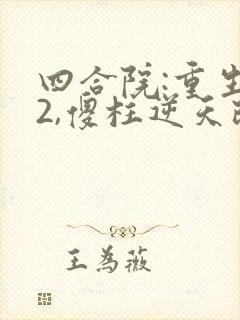 四合院:重生
2,傻柱逆天改
王为薇